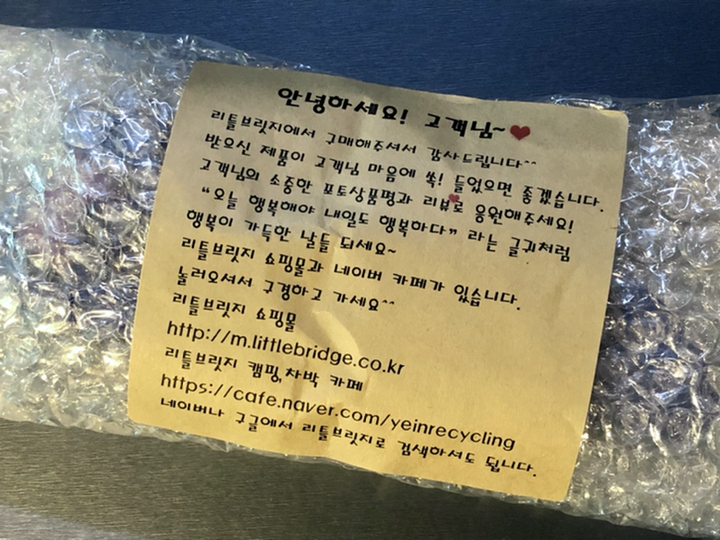 안녕하세요! 고객님~❤
리틀브릿지에서 구매해주셔서 감사드립니다^^
받으신 제품이 고객님 마음에 쏙! 들었으면 좋겠습니다.
고객님의 소중한 포토상품평과 리뷰로 응원해주세요!
"오늘 행복해야 내일도 행복하다" 라는 글귀처럼
행복이 가득한 날들 되세요~
리틀브릿지 쇼핑몰과 네이버 카페가 있습니다.
놀러오셔서 구경하고 가세요^^
리틀브릿지 쇼핑몰
http://m.littlebridge.co.kr
리틀브릿지 캠핑,차박 카페
https://cafe.naver.com/yeinrecycling
네이버나 구글에서 리틀브릿지로 검색하셔도 됩니다.